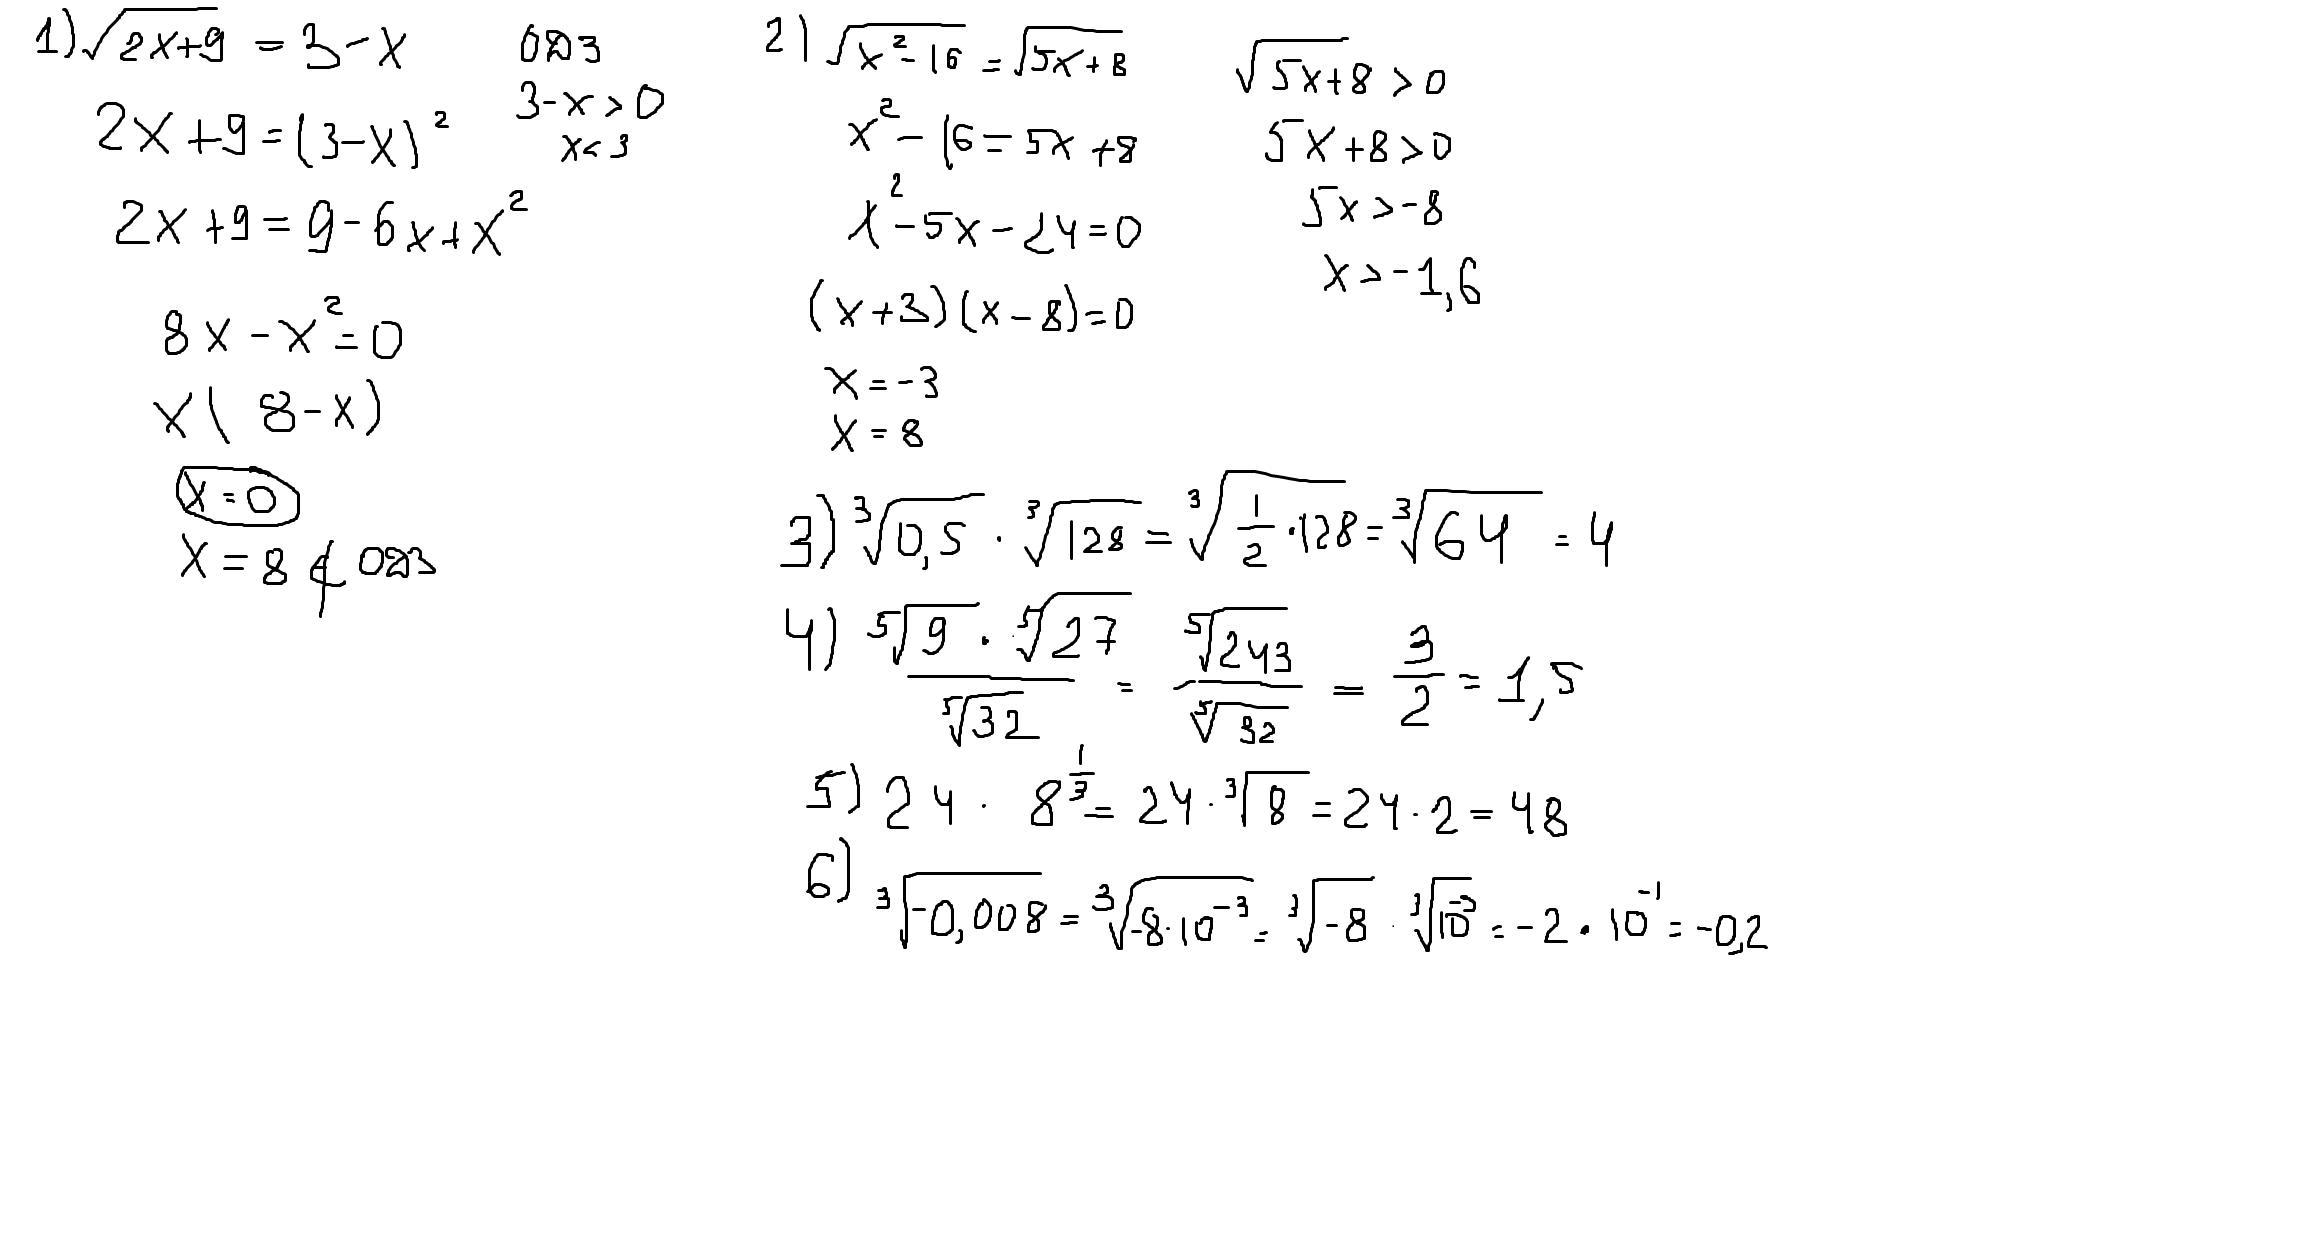 1) √(2x+9) = 3-x
ОДЗ
3-x>0
x<3
2x+9=(3-x)²
2x+9=9-6x+x²
8x-x²=0
x(8-x)
x=0
x=8 ∉ ОДЗ
2) √(x²-16) = √(5x+8)
x²-16=5x+8
x²-5x-24=0
(x+3)(x-8)=0
x=-3
x=8
√(5x+8) >0
5x+8>0
5x>-8
x>-1,6
3) ∛0,5 · ∛128 = ∛(1/2·128) = ∛64 = 4
4) (⁵√9 · ⁵√27)/⁵√32 = ⁵√243/⁵√32 = 3/2 = 1,5
5) 24 · 8^(1/3) = 24·∛8 = 24·2=48
6) ∛(-0,008) = ∛(-8·10⁻³) = ∛(-8) · ∛(10⁻³) = -2·10⁻¹ = -0,2